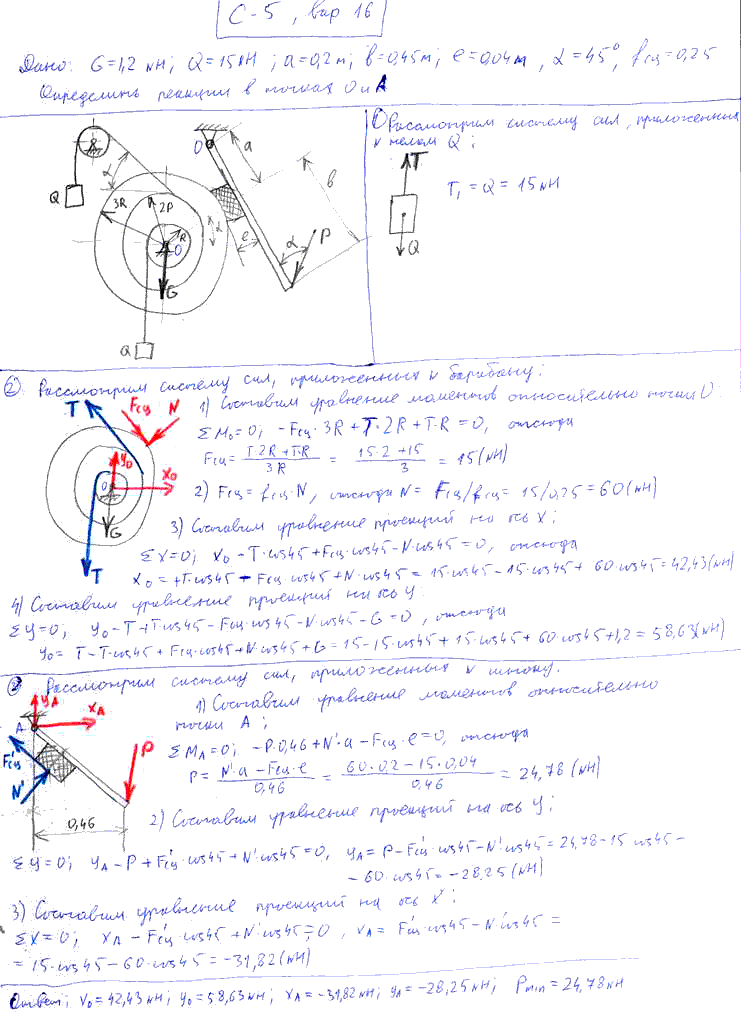 С-5, вар 16
Дано: G=1,2 кН; Q=15кН; a=0,2м; b=0,45м; e=0,04м, α=45°, fсц=0,25
Определить реакции в точках О и А
O
a
b
α
Q
3R
2P
R
O
G
α
e
α
P
Q
1) Рассмотрим систему сил, приложенных
к телам Q;
T
T₁ = Q = 15 кН
Q
2) Рассмотрим систему сил, приложенных к барабану:
T
Fсц
N
y₀
x₀
O
G
T
1) Составим уравнение моментов относительно точки О
ΣM₀=0; -Fсц·3R+T·2R+T·R=0, отсюда
Fсц = (T·2R+T·R)/3R = (15·2+15)/3 = 15(кН)
2) Fсц=fсц·N, отсюда N = Fсц/fсц = 15/0,25=60(кН)
3) Составим уравнение проекций на ось X;
Σx=0; x₀-T·cos45+Fсц·cos45-N·cos45=0, отсюда
x₀=+T·cos45-Fсц·cos45+N·cos45=15·cos45-15·cos45+60·cos45=42,43(кН)
4) Составим уравнение проекций на ось y
Σy=0; y₀-T+T·cos45-Fсц·cos45-N·cos45-G=0, отсюда
y₀= T-T·cos45+Fсц·cos45+N·cos45+G=15-15·cos45+15·cos45+60·cos45+1,2=58,63(кН)
3) Рассмотрим систему сил, приложенных к штоку.
yA
xA
A
F'сц
N'
P
0,46
1) Составим уравнение моментов относительно
точки А;
ΣMA=0; -P·0,46+N'·a-Fсц·e=0, отсюда
P= (N'·a-Fсц·e)/0,46 = (60·0,2-15·0,04)/0,46 = 24,78 (кН)
2) Составим уравнение проекций на ось y;
Σy=0; yA-P+F'сц·cos45+N'·cos45=0, yA=P-F'сц·cos45-N'·cos45=24,78-15·cos45-
-60·cos45=-28,25(кН)
3) Составим уравнение проекций на ось x;
Σx=0; xA-F'сц·cos45+N'·cos45=0, xA= F'сц·cos45-N'·cos45=
=15·cos45-60·cos45=-31,82(кН)
Ответ: x₀=42,43кН; y₀=58,63кН; xA=-31,82кН; yA=-28,25кН; Pmin=24,78кН